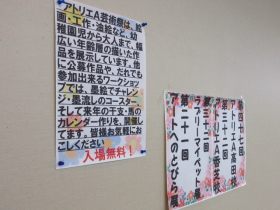 アトリエA芸術祭は、絵
画・工作・油絵など、幼
稚園児から大人まで、幅
広い年齢層の描いた作
品を展示しています。他
に公募作品や、だれでも
参加出来るワークショッ
プでは、墨絵でチャレン
ジ・墨流しのコースター、
そして来年の干支・馬の
カレンダー作りを、開催し
てます。皆様お気軽にお
こしください
入場無料！
第四十七回
アトリエA高田校
第三十二回
アトリエA香芝校
第三十一回
第二十一回
アートへのとびら展